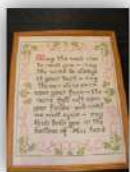 May the road rise
to meet you — may
the wind be always
at your back — may
the sun shine warm
upon your face — the
rains fall soft upon
your fields — and until
we meet again — may
God hold you in the
hollow of His hand